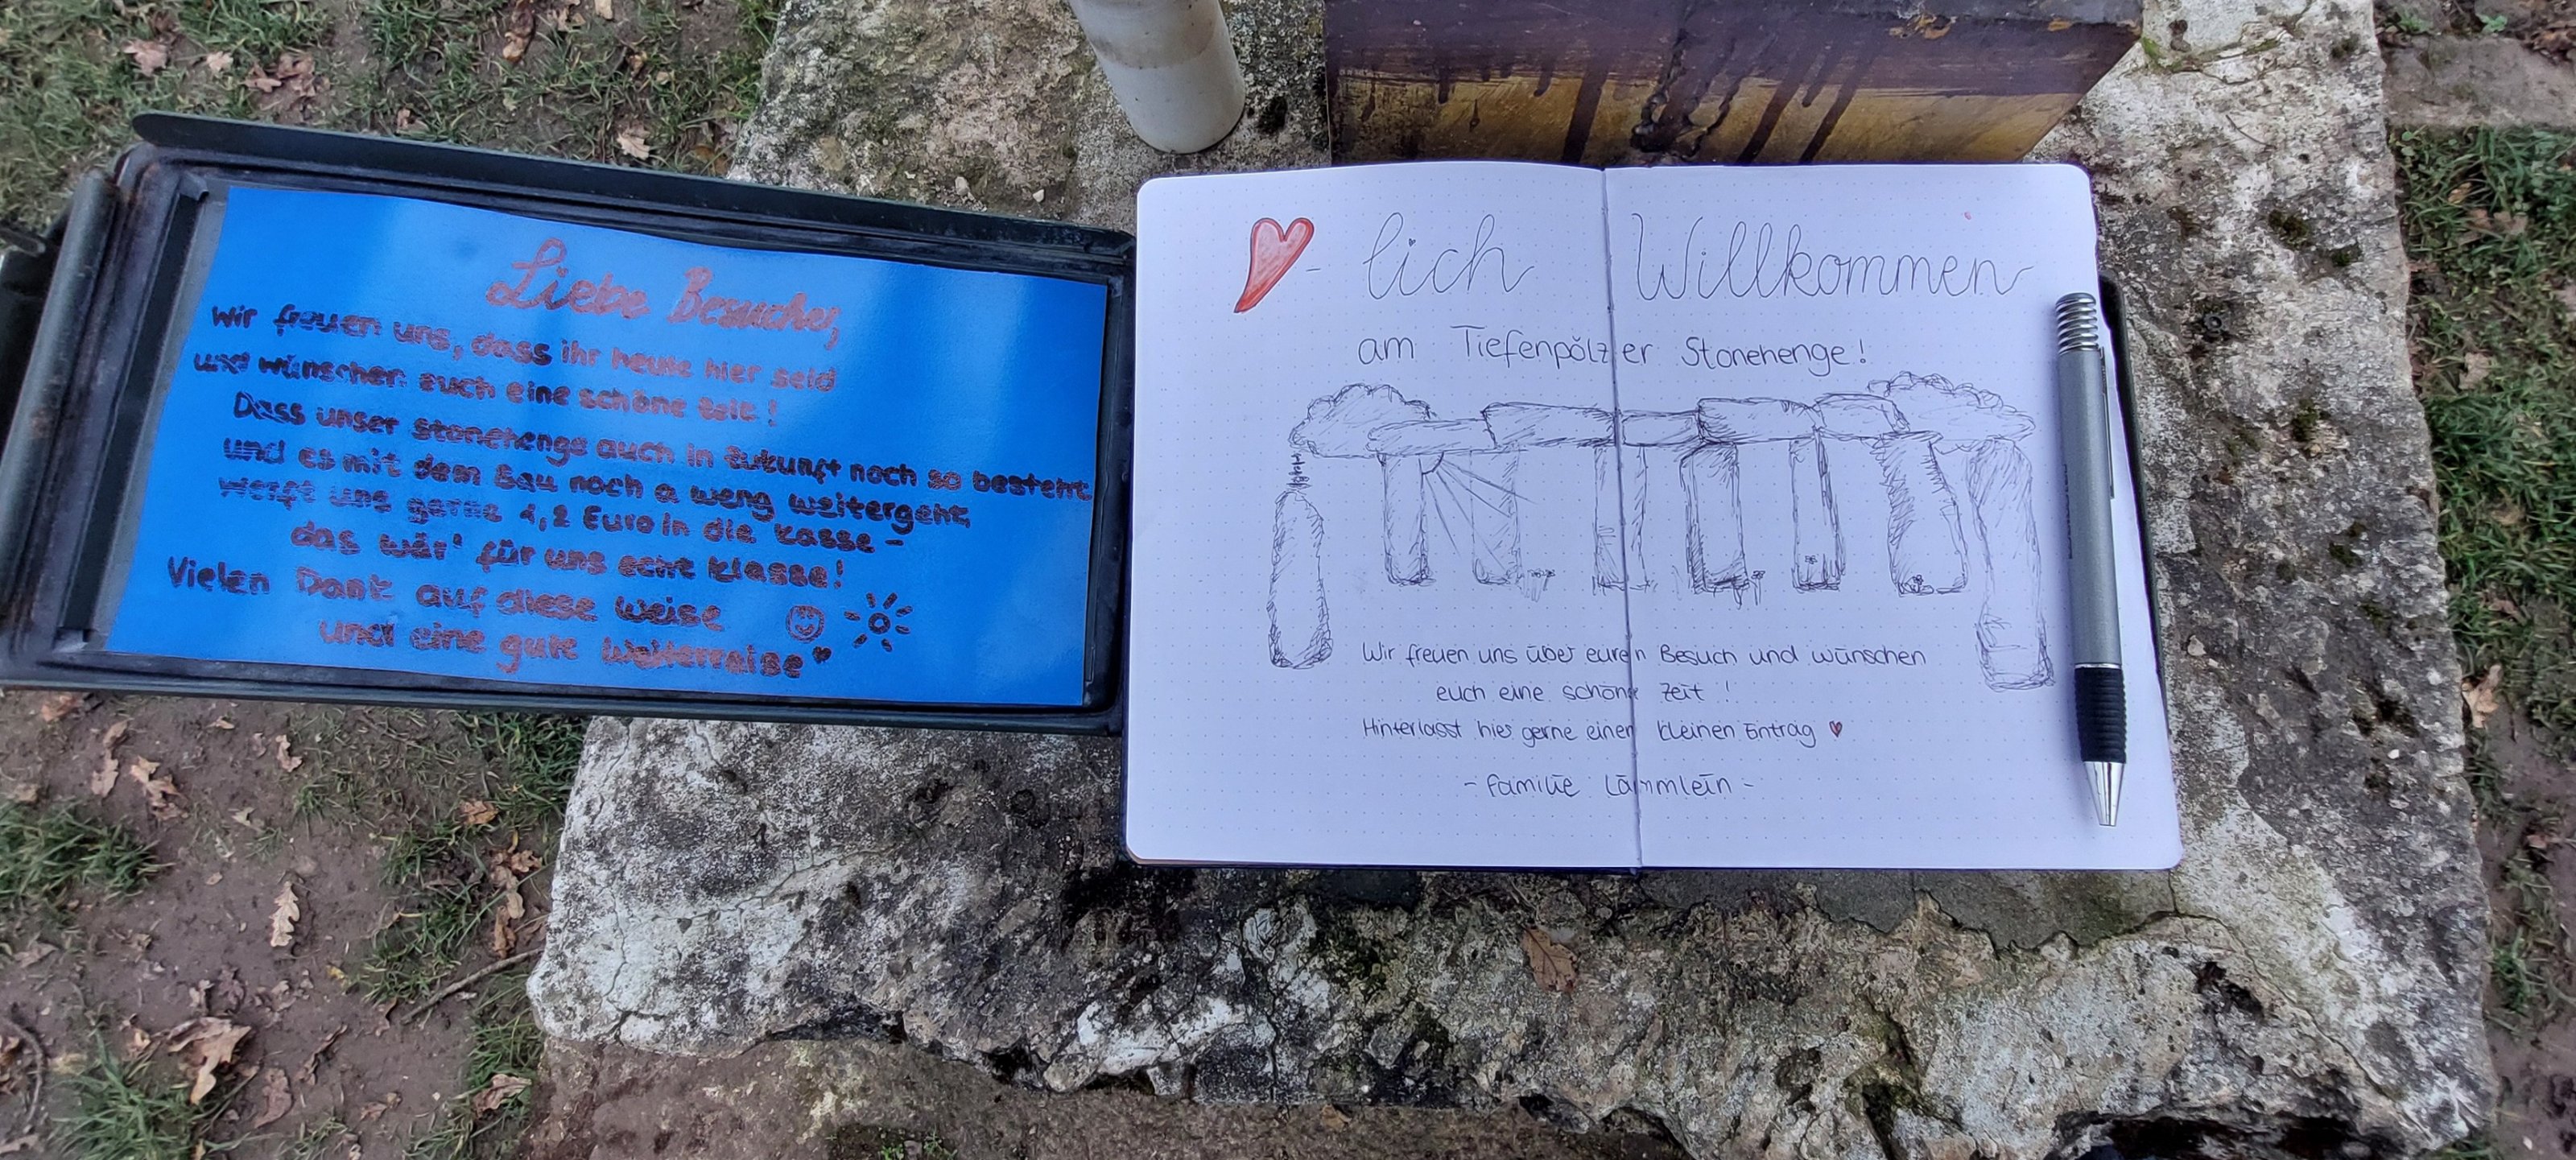 Liebe Besucher,
wir freuen uns, dass ihr heute hier seid
und wünschen euch eine schöne Zeit!
Dass unser Stonehenge auch in Zukunft noch so besteht
und es mit dem Bau noch a weng weitergeht,
werft uns gerne 1,2 Euro in die Kasse –
das wär' für uns echt klasse!
Vielen Dank auf diese Weise
und eine gute Weiterreise
-lich Willkommen
am Tiefenpölzer Stonehenge!
Wir freuen uns über euren Besuch und wünschen
euch eine schöne Zeit!
Hinterlasst hier gerne einen kleinen Eintrag
- Familie Lämmlein -